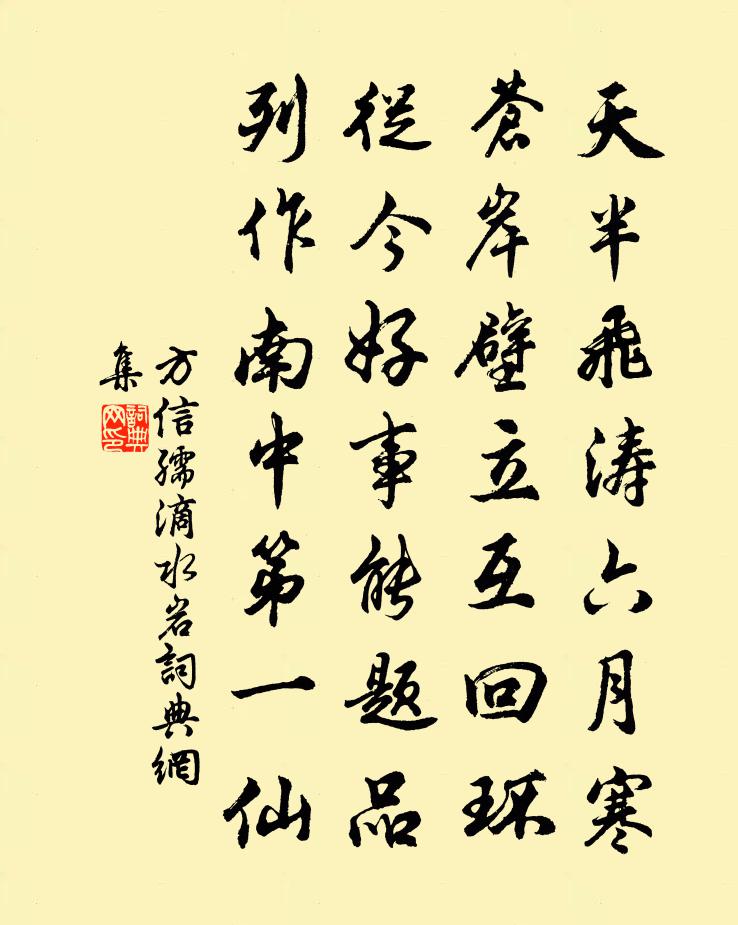 天半飛涛六月寒
蒼岸壁立互回环
從今好事能题品
列作南中第一仙
方信孺滴水岩詞典網
集
詞典网印